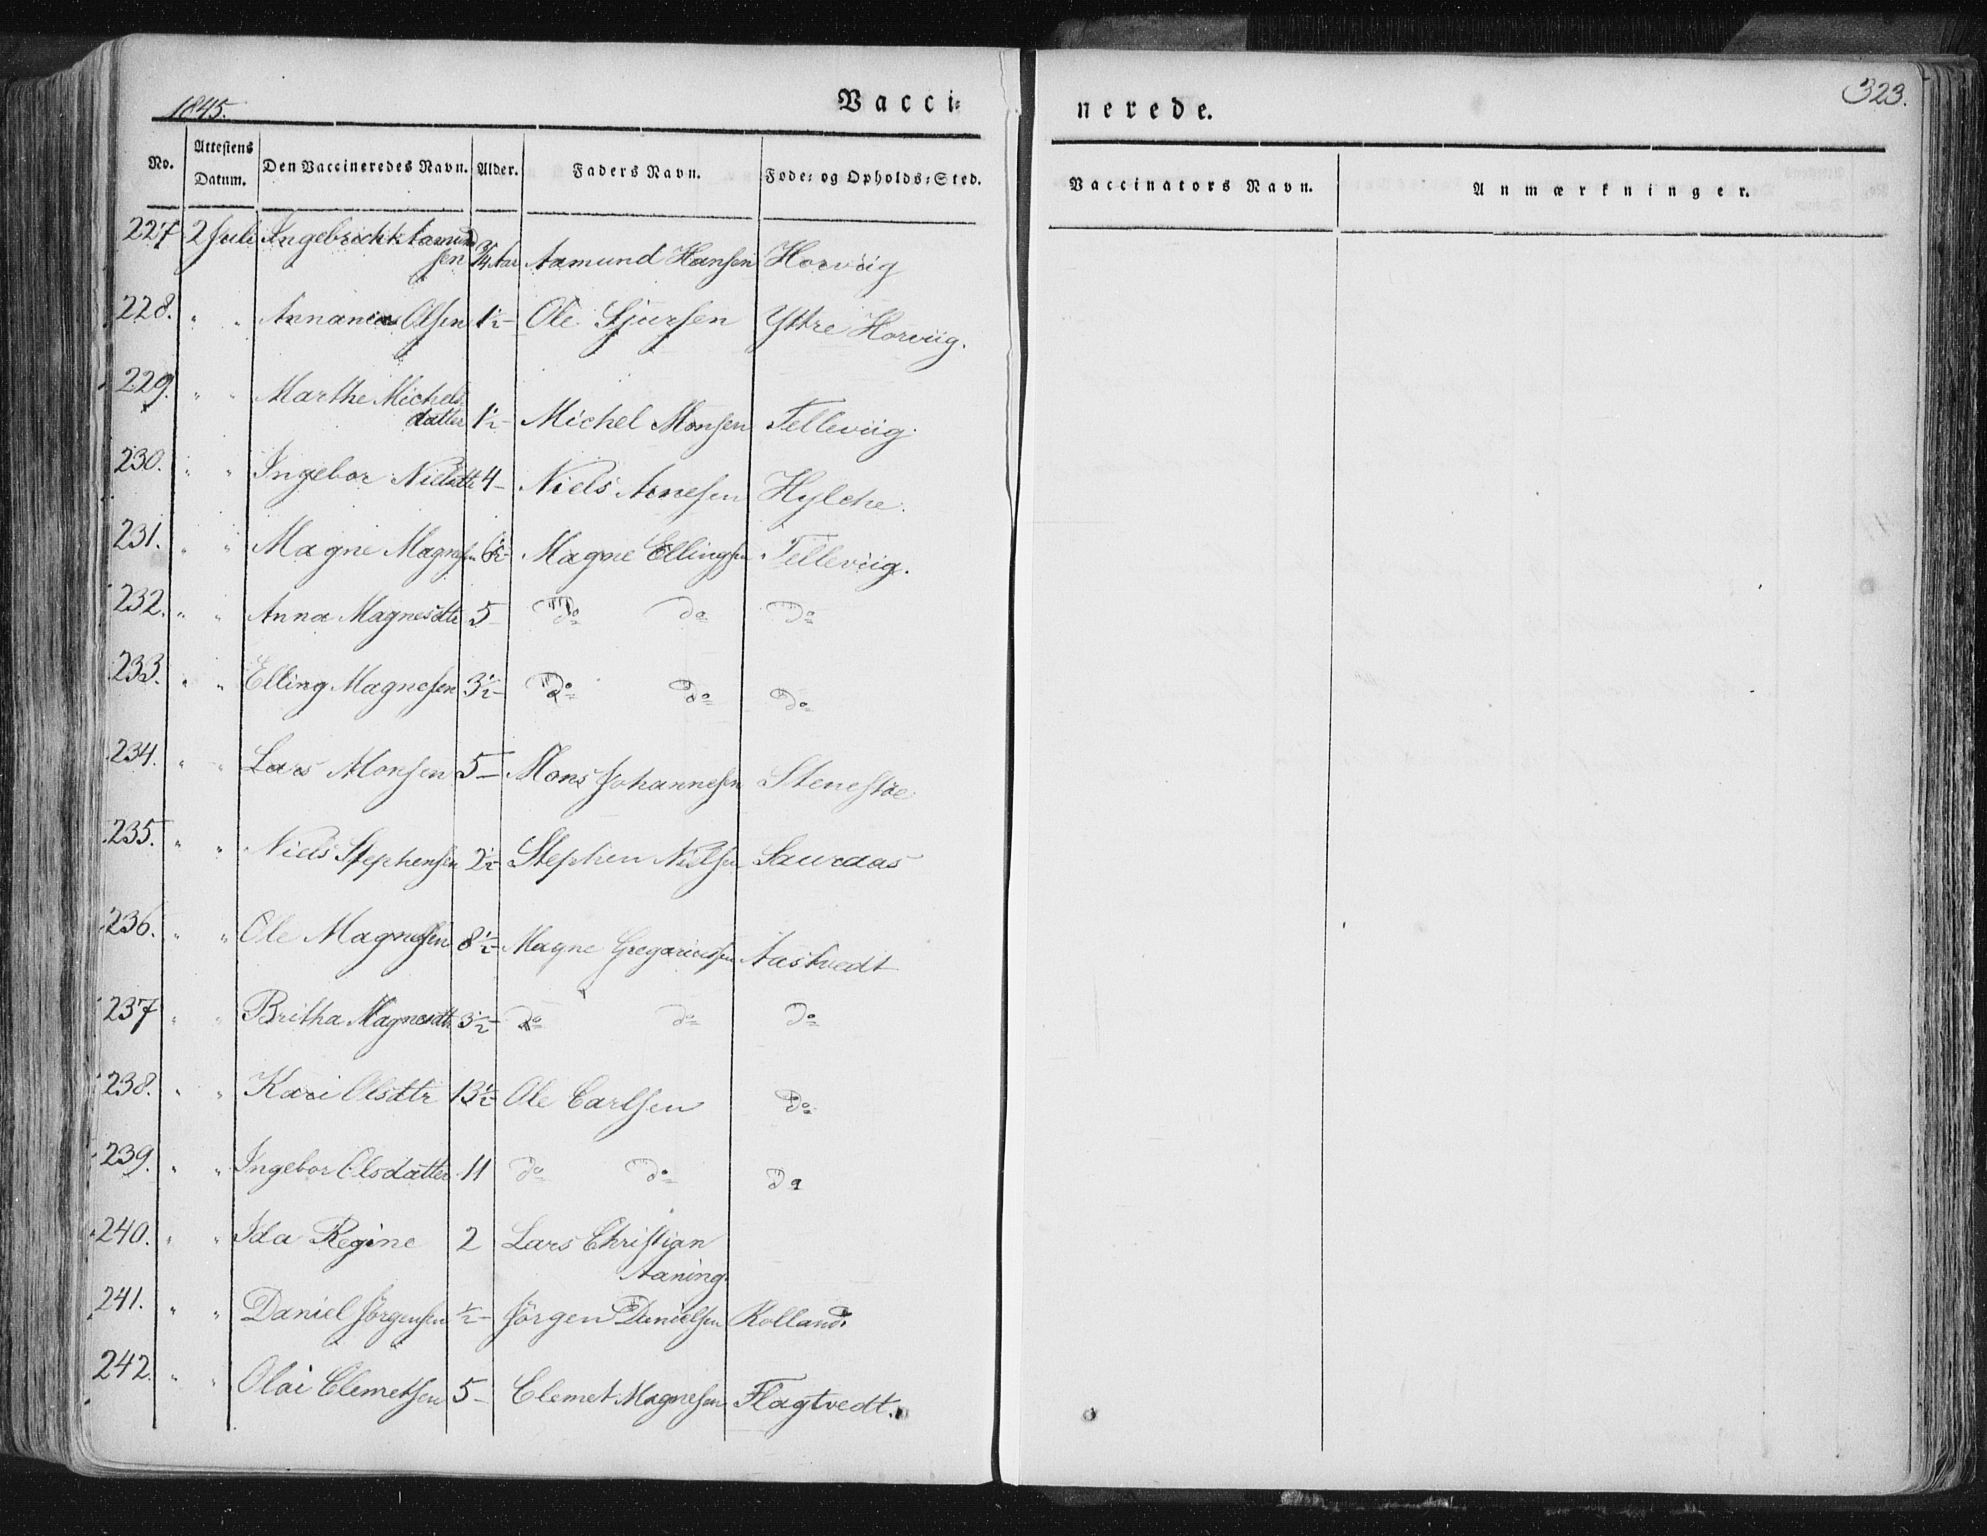 1845.
Vacci=
nerede.
323.
No. Attestens Datum. Den Vaccineredes Navn. Alder. Faders Navn. Føde= og Opholds=Sted. Vaccinators Navn. Anmærkninger.
227 2 Juli Ingebrickt Aamund
sen 3/4 Aar Aamund Hansen Horviig
228. " " Annanias Olsen 1½ - Ole Sjursen Yttre Horviig.
229. " " Marthe Michels
datter 1½ - Michel Monsen Telleviig.
230. " " Ingebor Nielsdtt 4 - Niels Arnesen Hylche.
231. " " Magne Magnesen 6½ - Magne Ellingsen Telleviig.
232. " " Anna Magnesdtt 5 - Do do Do
233. " " Elling Magnesen 3½ - Do Do Do
234. " " Lars Monsen 5 - Mons Johannesen Stenestøe
235. " " Niels Stephensen 2½ - Stephen Nielsen Sauraas
236. " " Ole Magnesen 8½ - Magne Gregoriussen Aastvedt
237 " " Britha Magnesdtt 3½ - Do do Do
238. " " Kari Olsdtr 13½ - Ole Carlsen Do
239. " " Ingebor Olsdatter 11 do Do Do
240. " " Ida Regine 2 Lars Christian
Aaning.
241. " " Daniel Jørgensen ½ - Jørgen Danielsen Rolland.
242. " " Olai Clemetsen 5 - Clemet Magnesen Flagtvedt.